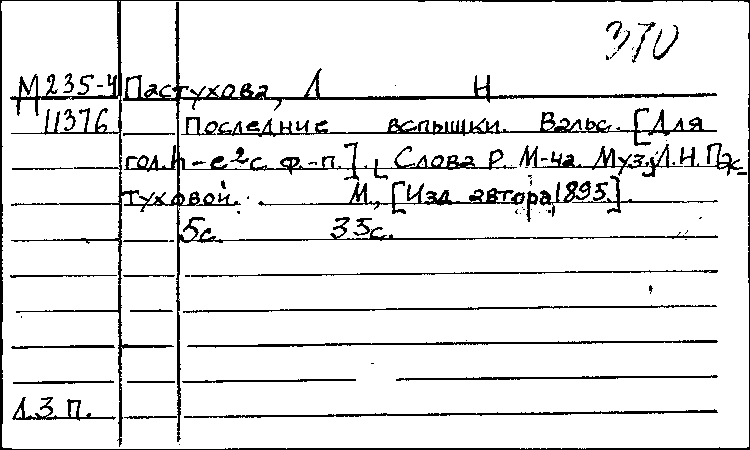 370
М 235-4 Пастухова, Л Н
11376 Последние вспышки. Вальс. [Для
гол. h-e² с. ф.-п.]. Слова Р. М-ча. Муз. Л.Н. Пас-
туховой. М., [Изд. автора, 1895.].
5с. 35с.
Л.З.П.